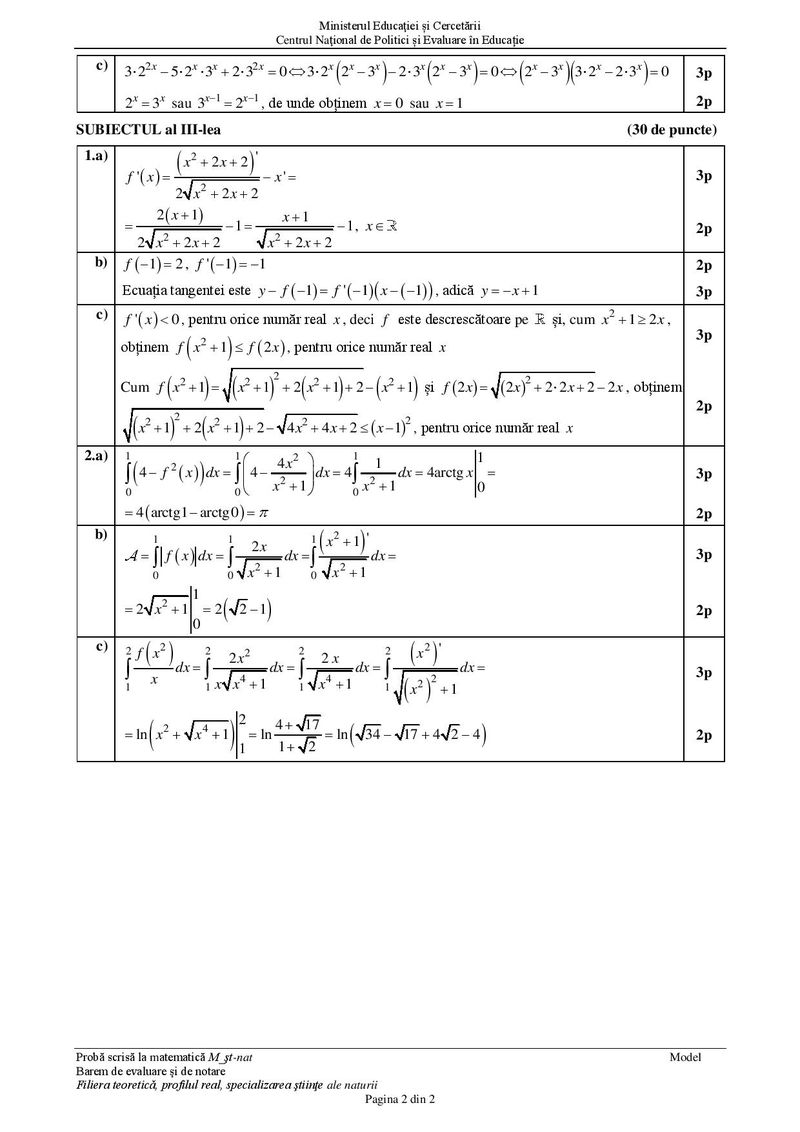 Ministerul Educaţiei și Cercetării
Centrul Naţional de Politici și Evaluare în Educaţie
c) 3·2^{2x} − 5·2^x·3^x + 2·3^{2x} = 0 ⇔ 3·2^x(2^x − 3^x) − 2·3^x(2^x − 3^x) = 0 ⇔ (2^x − 3^x)(3·2^x − 2·3^x) = 0 3p
2^x = 3^x sau 3^{x−1} = 2^{x−1}, de unde obţinem x = 0 sau x = 1 2p
SUBIECTUL al III-lea (30 de puncte)
1.a) f '(x) = (x² + 2x + 2)' / (2√(x² + 2x + 2)) − x' = 3p
= 2(x+1) / (2√(x² + 2x + 2)) − 1 = (x+1) / √(x² + 2x + 2) − 1, x ∈ ℝ 2p
b) f(−1) = 2, f '(−1) = −1 2p
Ecuaţia tangentei este y − f(−1) = f '(−1)(x − (−1)), adică y = −x + 1 3p
c) f '(x) < 0, pentru orice număr real x, deci f este descrescătoare pe ℝ și, cum x² + 1 ≥ 2x,
obţinem f(x² + 1) ≤ f(2x), pentru orice număr real x 3p
Cum f(x² + 1) = √((x² + 1)² + 2(x² + 1) + 2) − (x² + 1) și f(2x) = √((2x)² + 2·2x + 2) − 2x, obţinem
√((x² + 1)² + 2(x² + 1) + 2) − √(4x² + 4x + 2) ≤ (x − 1)², pentru orice număr real x 2p
2.a) ∫₀¹ (4 − f²(x)) dx = ∫₀¹ (4 − 4x²/(x² + 1)) dx = 4∫₀¹ 1/(x² + 1) dx = 4arctg x |₀¹ = 3p
= 4(arctg1 − arctg0) = π 2p
b) 𝒜 = ∫₀¹ |f(x)| dx = ∫₀¹ 2x/√(x² + 1) dx = ∫₀¹ (x² + 1)'/√(x² + 1) dx = 3p
= 2√(x² + 1) |₀¹ = 2(√2 − 1) 2p
c) ∫₁² f(x²)/x dx = ∫₁² 2x²/(x√(x⁴ + 1)) dx = ∫₁² 2x/√(x⁴ + 1) dx = ∫₁² (x²)'/√((x²)² + 1) dx = 3p
= ln(x² + √(x⁴ + 1)) |₁² = ln (4 + √17)/(1 + √2) = ln(√34 − √17 + 4√2 − 4) 2p
Probă scrisă la matematică M_şt-nat Model
Barem de evaluare şi de notare
Filiera teoretică, profilul real, specializarea ştiinţe ale naturii
Pagina 2 din 2